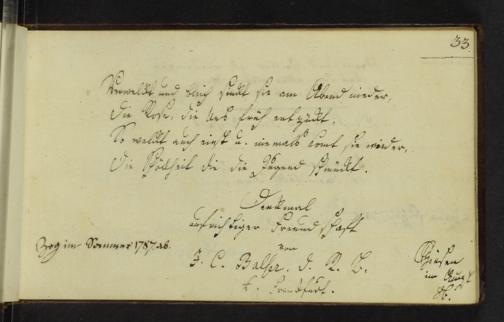 33
Verwelkt und bleich sinkt sie am Abend nieder,
Die Rose, die uns früh entzükt.
So welkt auch einst u. niemals kömt sie wieder,
Die Schönheit die die Jugend schmückt.
Denkmal
aufrichtiger Freundschaft
von
J. C. Balser. d. R. B.
Zog im Sommer 1787 ab.
Giesen
im Augst
86.